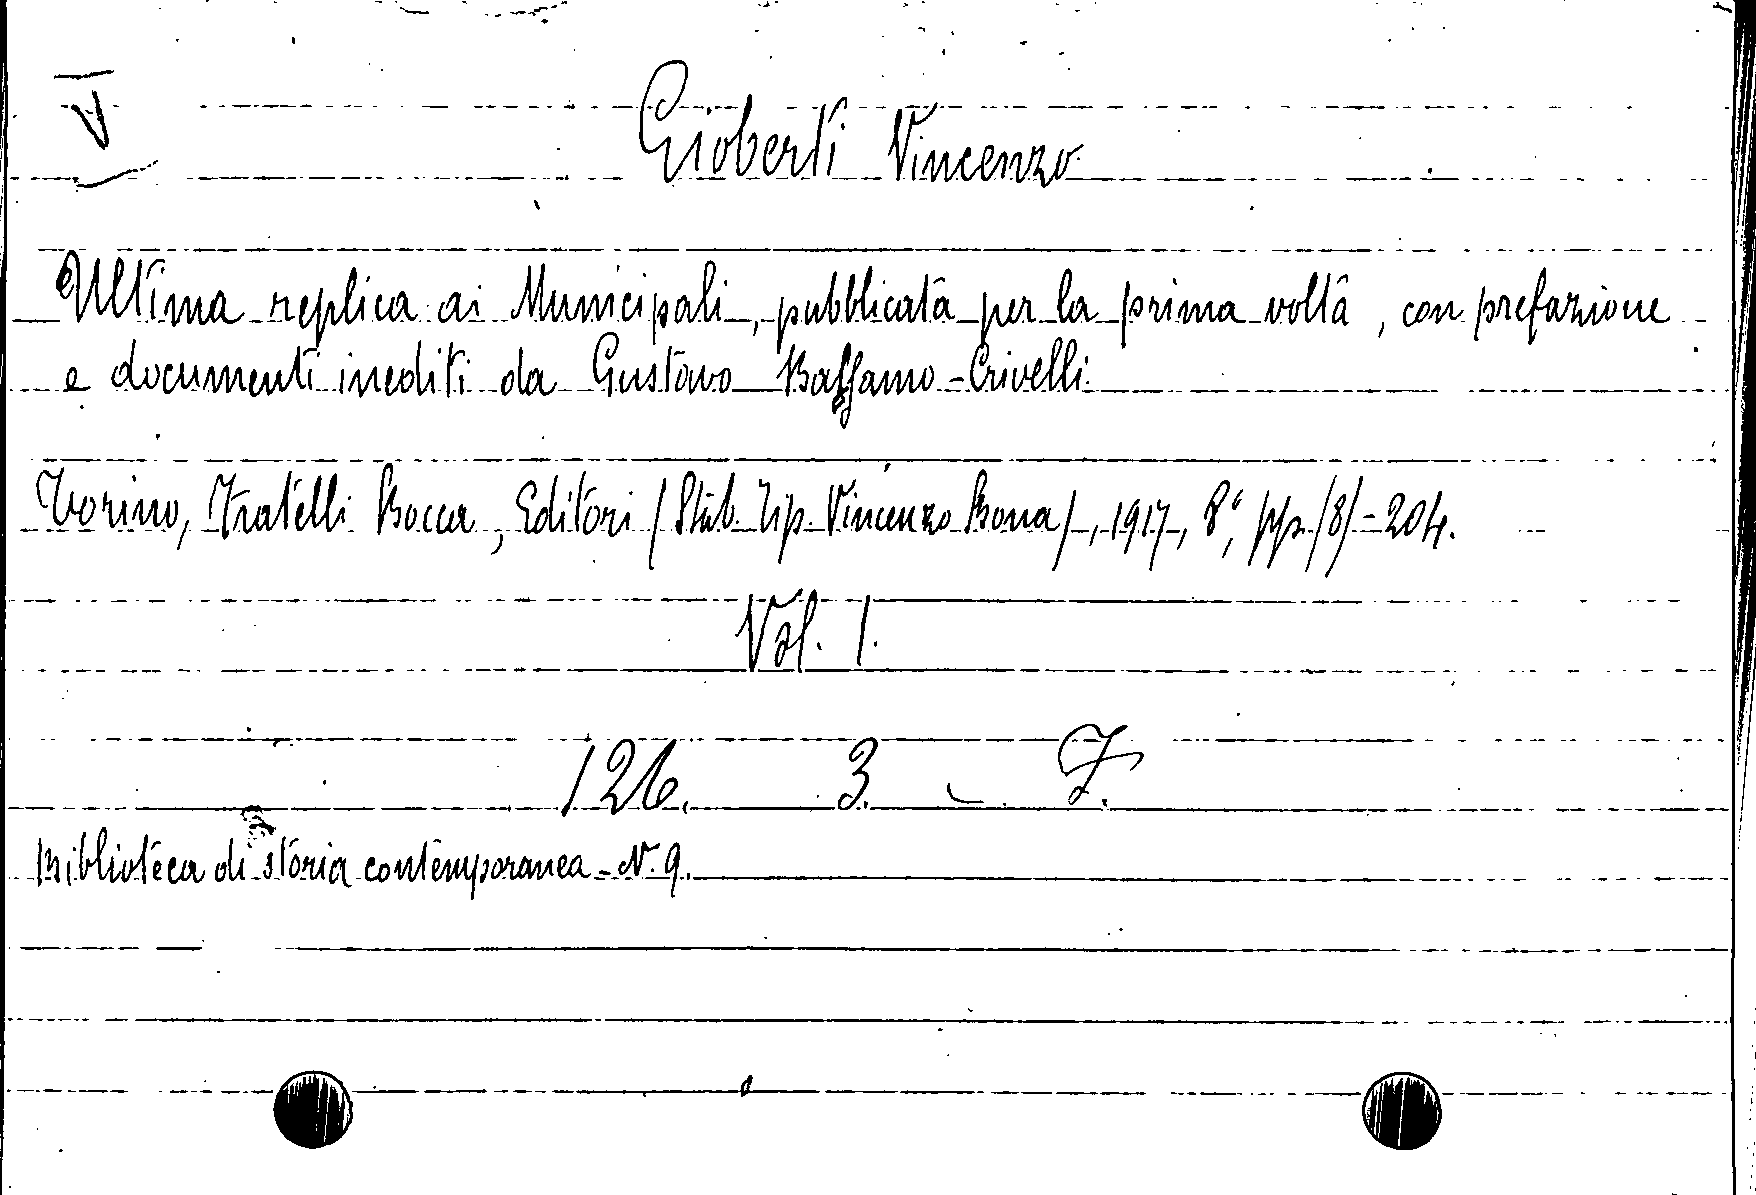 V
Gioberti Vincenzo
Ultima replica ai Municipali, pubblicata per la prima volta, con prefazione
e documenti inediti da Gustavo Balsamo-Crivelli.
Torino, Fratelli Bocca, Editori (Stab. Tip. Vincenzo Bona), 1917, 8°, pp. (8)-204.
Vol. 1.
126. 3. - F.
Biblioteca di storia contemporanea - N. 9.